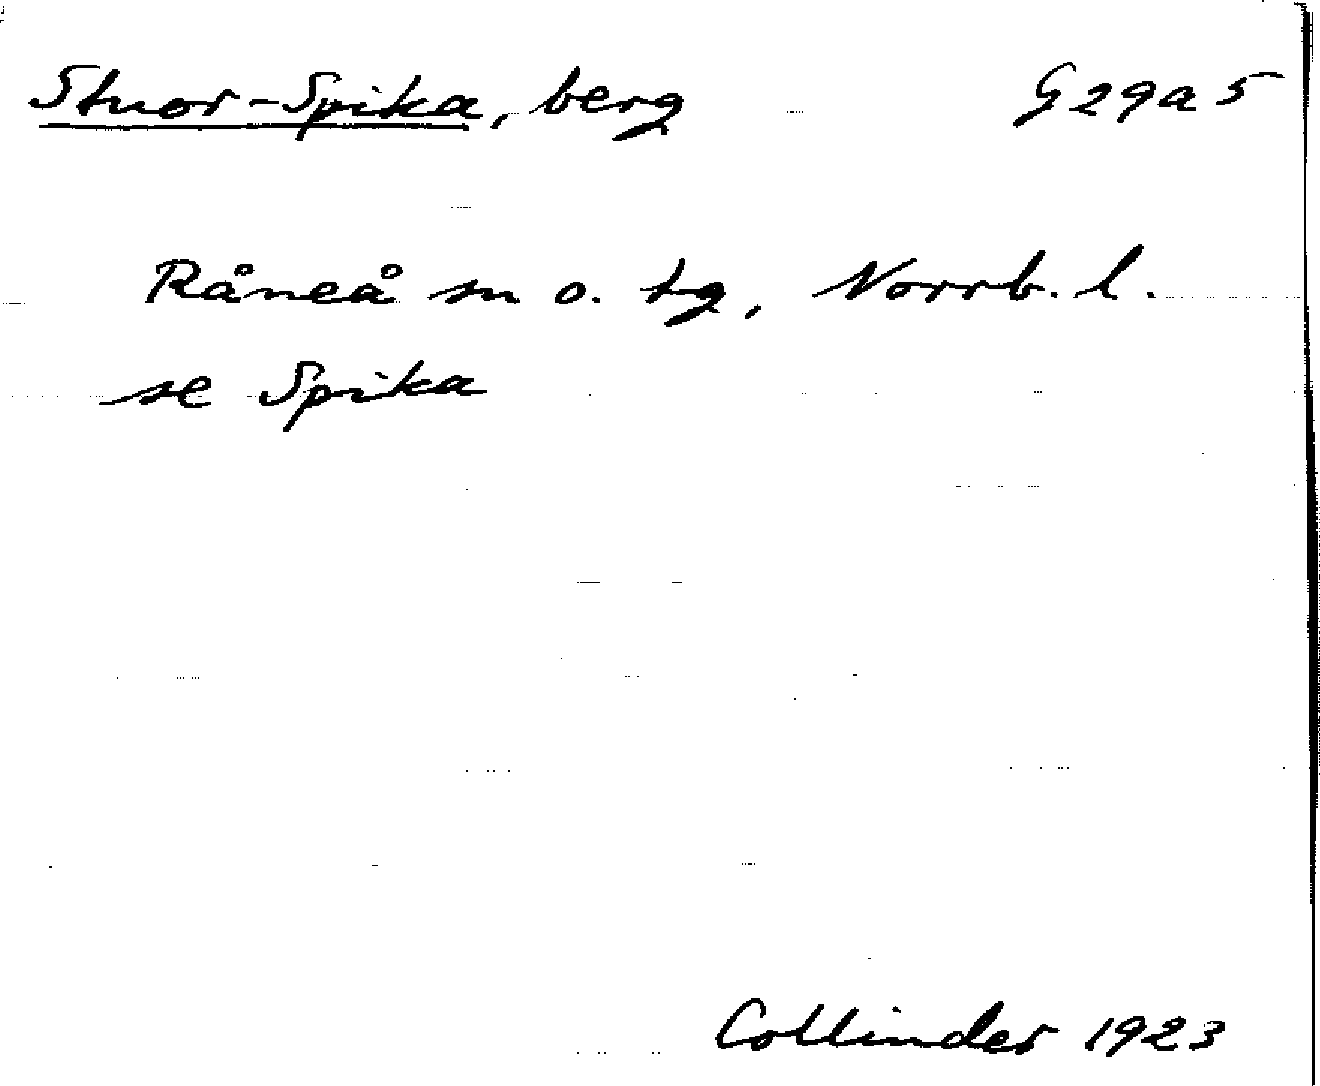 Stuor-Spika, berg G29a5
Råneå sn o. tg, Norrb. l.
se Spika
Collinder 1923